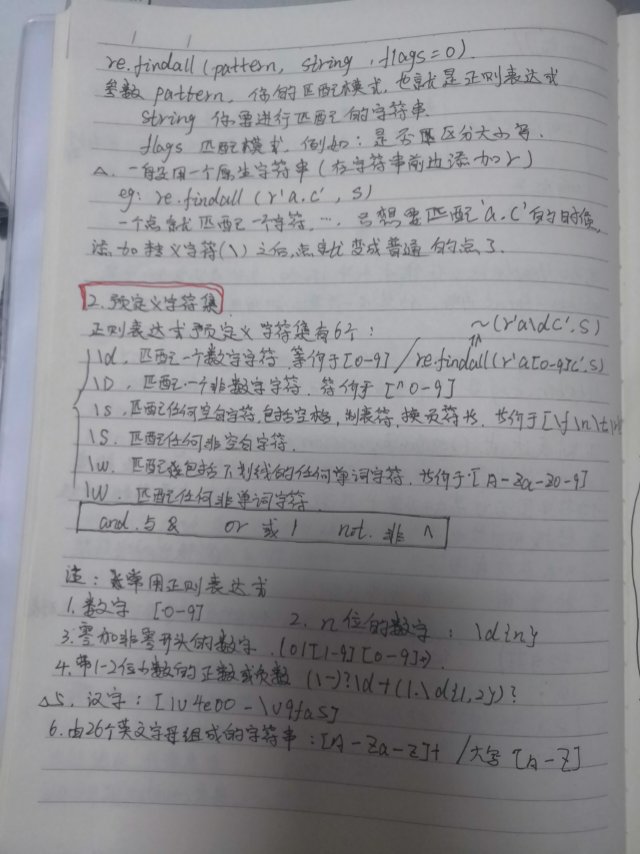 re.findall(pattern, string, flags=0)
参数 pattern, 你的匹配模式, 也就是正则表达式
string 你要进行匹配的字符串.
flags 匹配模式. 例如: 是否区分大小写.
△. 一般用一个原生字符串 (在字符串前边添加r)
eg: re.findall (r'a.c', s)
一个点就匹配一个字符, …, 只想要匹配'a.c'的时候,
添加转义字符(\) 之后,点就变成普通的点了.
2. 预定义字符集
正则表达式预定义字符集有6个: ~(r'a\dc', s)
\d. 匹配一个数字字符. 等价于[0-9] / re.findall(r'a[0-9]c', s)
\D. 匹配一个非数字字符. 等价于 [^0-9]
\s. 匹配任何空白字符,包括空格, 制表符, 换页符等. 等价于[\f\n\t
\S. 匹配任何非空白字符.
\w. 匹配包括下划线的任何单词字符. 等价于[A-Za-z0-9]
\W. 匹配任何非单词字符.
and. 与 & or 或 | not. 非 ^
注: 常用正则表达式
1. 数字 [0-9] 2. n位的数字: \d{n}
3. 零和非零开头的数字. (0|[1-9][0-9]*).
4. 带1-2位小数的正数或负数 (\-)?\d+(\.\d{1,2})?
△5. 汉字: [\u4e00-\u9fa5]
6. 由26个英文字母组成的字符串: [A-Za-z]+ /大写 [A-Z]